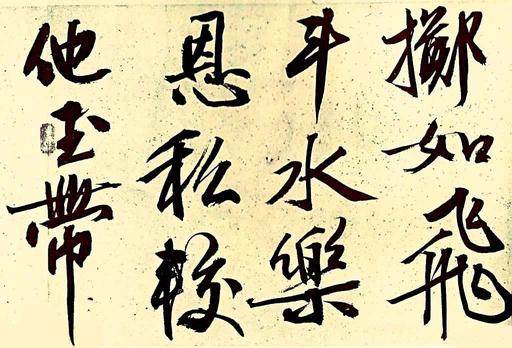 擲如飛
斗水樂
恩私較
他玉帶